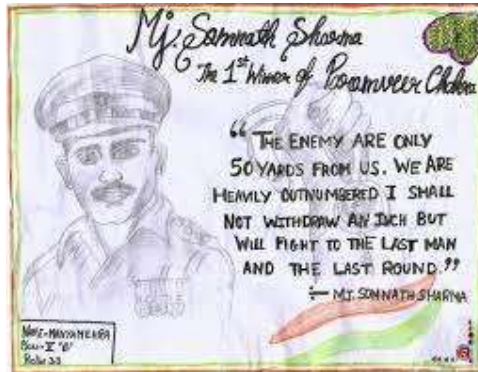 Mj. Somnath Sharma
The 1st Winner of Paramveer Chakra
“THE ENEMY ARE ONLY
50 YARDS FROM US. WE ARE
HEAVILY OUTNUMBERED I SHALL
NOT WITHDRAW AN INCH BUT
WILL FIGHT TO THE LAST MAN
AND THE LAST ROUND.”
:- MJ. SOMNATH SHARMA
NAME-MANYA MEHRA